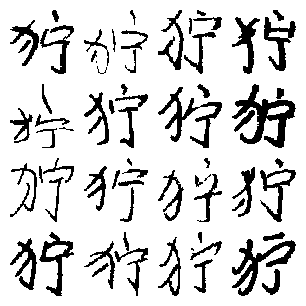 狞狞狞狞
狞狞狞狞
狞狞狞狞
狞狞狞狞